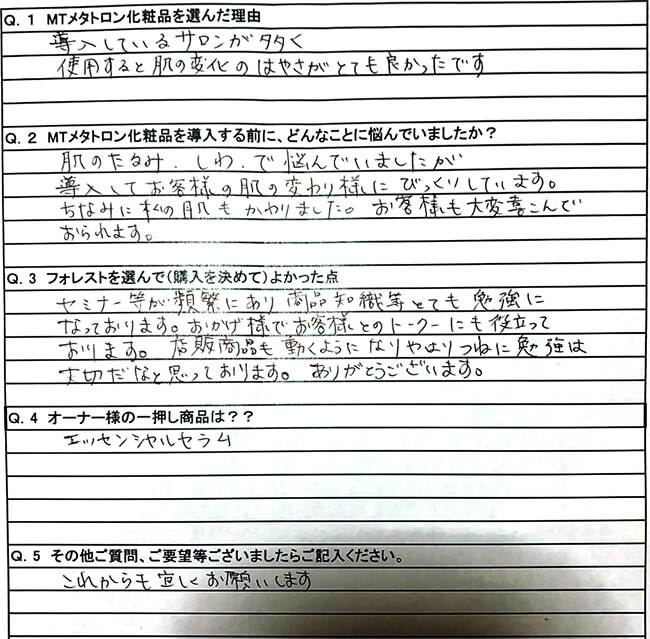 Q. 1 MTメタトロン化粧品を選んだ理由
導入しているサロンが多く
使用すると肌の変化のはやさがとても良かったです
Q. 2 MTメタトロン化粧品を導入する前に、どんなことに悩んでいましたか？
肌のたるみ．しわ．で悩んでいましたが
導入してお客様の肌の変わり様にびっくりしています。
ちなみに私の肌もかわりました。お客様も大変喜こんで
おられます。
Q. 3 フォレストを選んで（購入を決めて）よかった点
セミナー等が頻繁にあり商品知識等とても勉強に
なっております。おかげ様でお客様とのトークーにも役立って
おります。店販商品も動くようになりやはりつねに勉強は
大切だなと思っております。ありがとうございます。
Q. 4 オーナー様の一押し商品は？？
エッセンシャルセラム
Q. 5 その他ご質問、ご要望等ございましたらご記入ください。
これからも宜しくお願いします